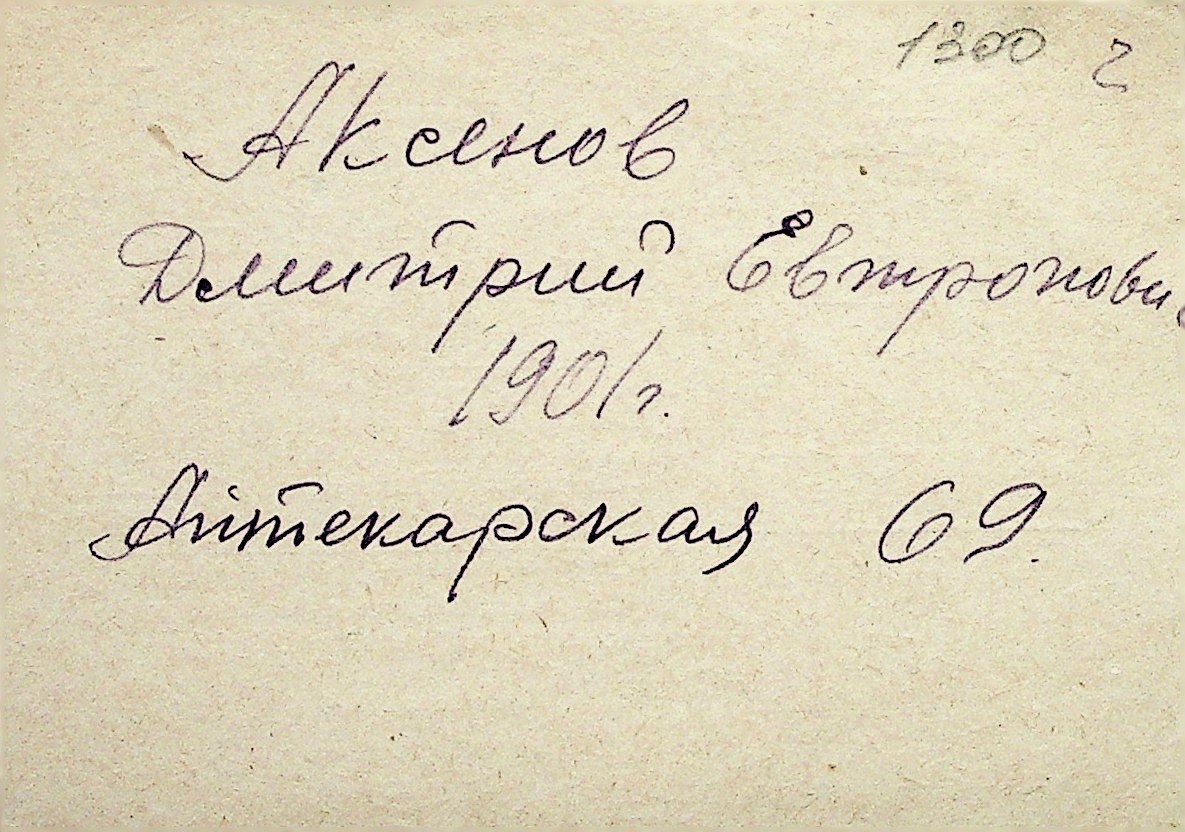 1300 г
Аксенов
Дмитрий Евтропович
1901г.
Аптекарская 69.